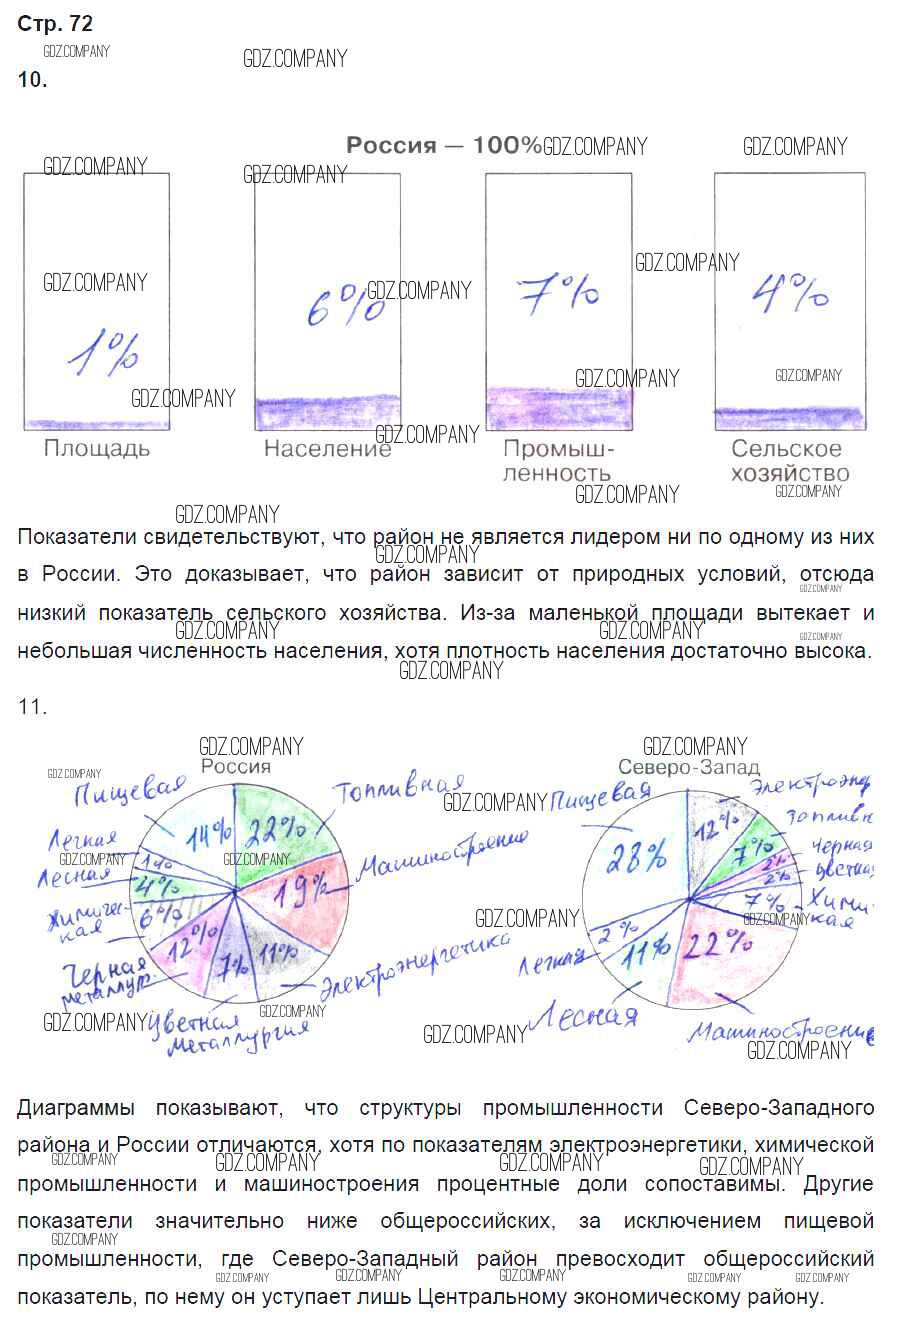 Стр. 72
GDZ.COMPANY
GDZ.COMPANY
10.
Россия — 100%
GDZ.COMPANY
GDZ.COMPANY
GDZ.COMPANY
GDZ.COMPANY
GDZ.COMPANY
GDZ.COMPANY
GDZ.COMPANY
1%
6%
7%
4%
GDZ.COMPANY
GDZ.COMPANY
GDZ.COMPANY
GDZ.COMPANY
Площадь
Население
Промыш-
ленность
Сельское
хозяйство
GDZ.COMPANY
GDZ.COMPANY
GDZ.COMPANY
Показатели свидетельствуют, что район не является лидером ни по одному из них
GDZ.COMPANY
в России. Это доказывает, что район зависит от природных условий, отсюда
GDZ.COMPANY
низкий показатель сельского хозяйства. Из-за маленькой площади вытекает и
GDZ.COMPANY
GDZ.COMPANY
GDZ.COMPANY
небольшая численность населения, хотя плотность населения достаточно высока.
GDZ.COMPANY
11.
GDZ.COMPANY
GDZ.COMPANY
GDZ.COMPANY
Россия
Пищевая
14%
22%
Топливная
Легкая
1%
Машиностроение
19%
Лесная
4%
Химичес-
кая
6%
Черная
металлург.
12%
7%
11%
Электроэнергетика
Цветная
металлургия
GDZ.COMPANY
GDZ.COMPANY
GDZ.COMPANY
GDZ.COMPANY
GDZ.COMPANY
Северо-Запад
Пищевая
28%
12%
Электроэнер
7%
Топливн
2%
Черная
2%
Цветная
7%
Хими-
кая
22%
Машиностроение
11%
Лесная
2%
Легкая
GDZ.COMPANY
GDZ.COMPANY
GDZ.COMPANY
GDZ.COMPANY
GDZ.COMPANY
Диаграммы показывают, что структуры промышленности Северо-Западного
района и России отличаются, хотя по показателям электроэнергетики, химической
GDZ.COMPANY
GDZ.COMPANY
GDZ.COMPANY
GDZ.COMPANY
промышленности и машиностроения процентные доли сопоставимы. Другие
показатели значительно ниже общероссийских, за исключением пищевой
GDZ.COMPANY
промышленности, где Северо-Западный район превосходит общероссийский
GDZ.COMPANY
GDZ.COMPANY
GDZ.COMPANY
GDZ.COMPANY
GDZ.COMPANY
показатель, по нему он уступает лишь Центральному экономическому району.